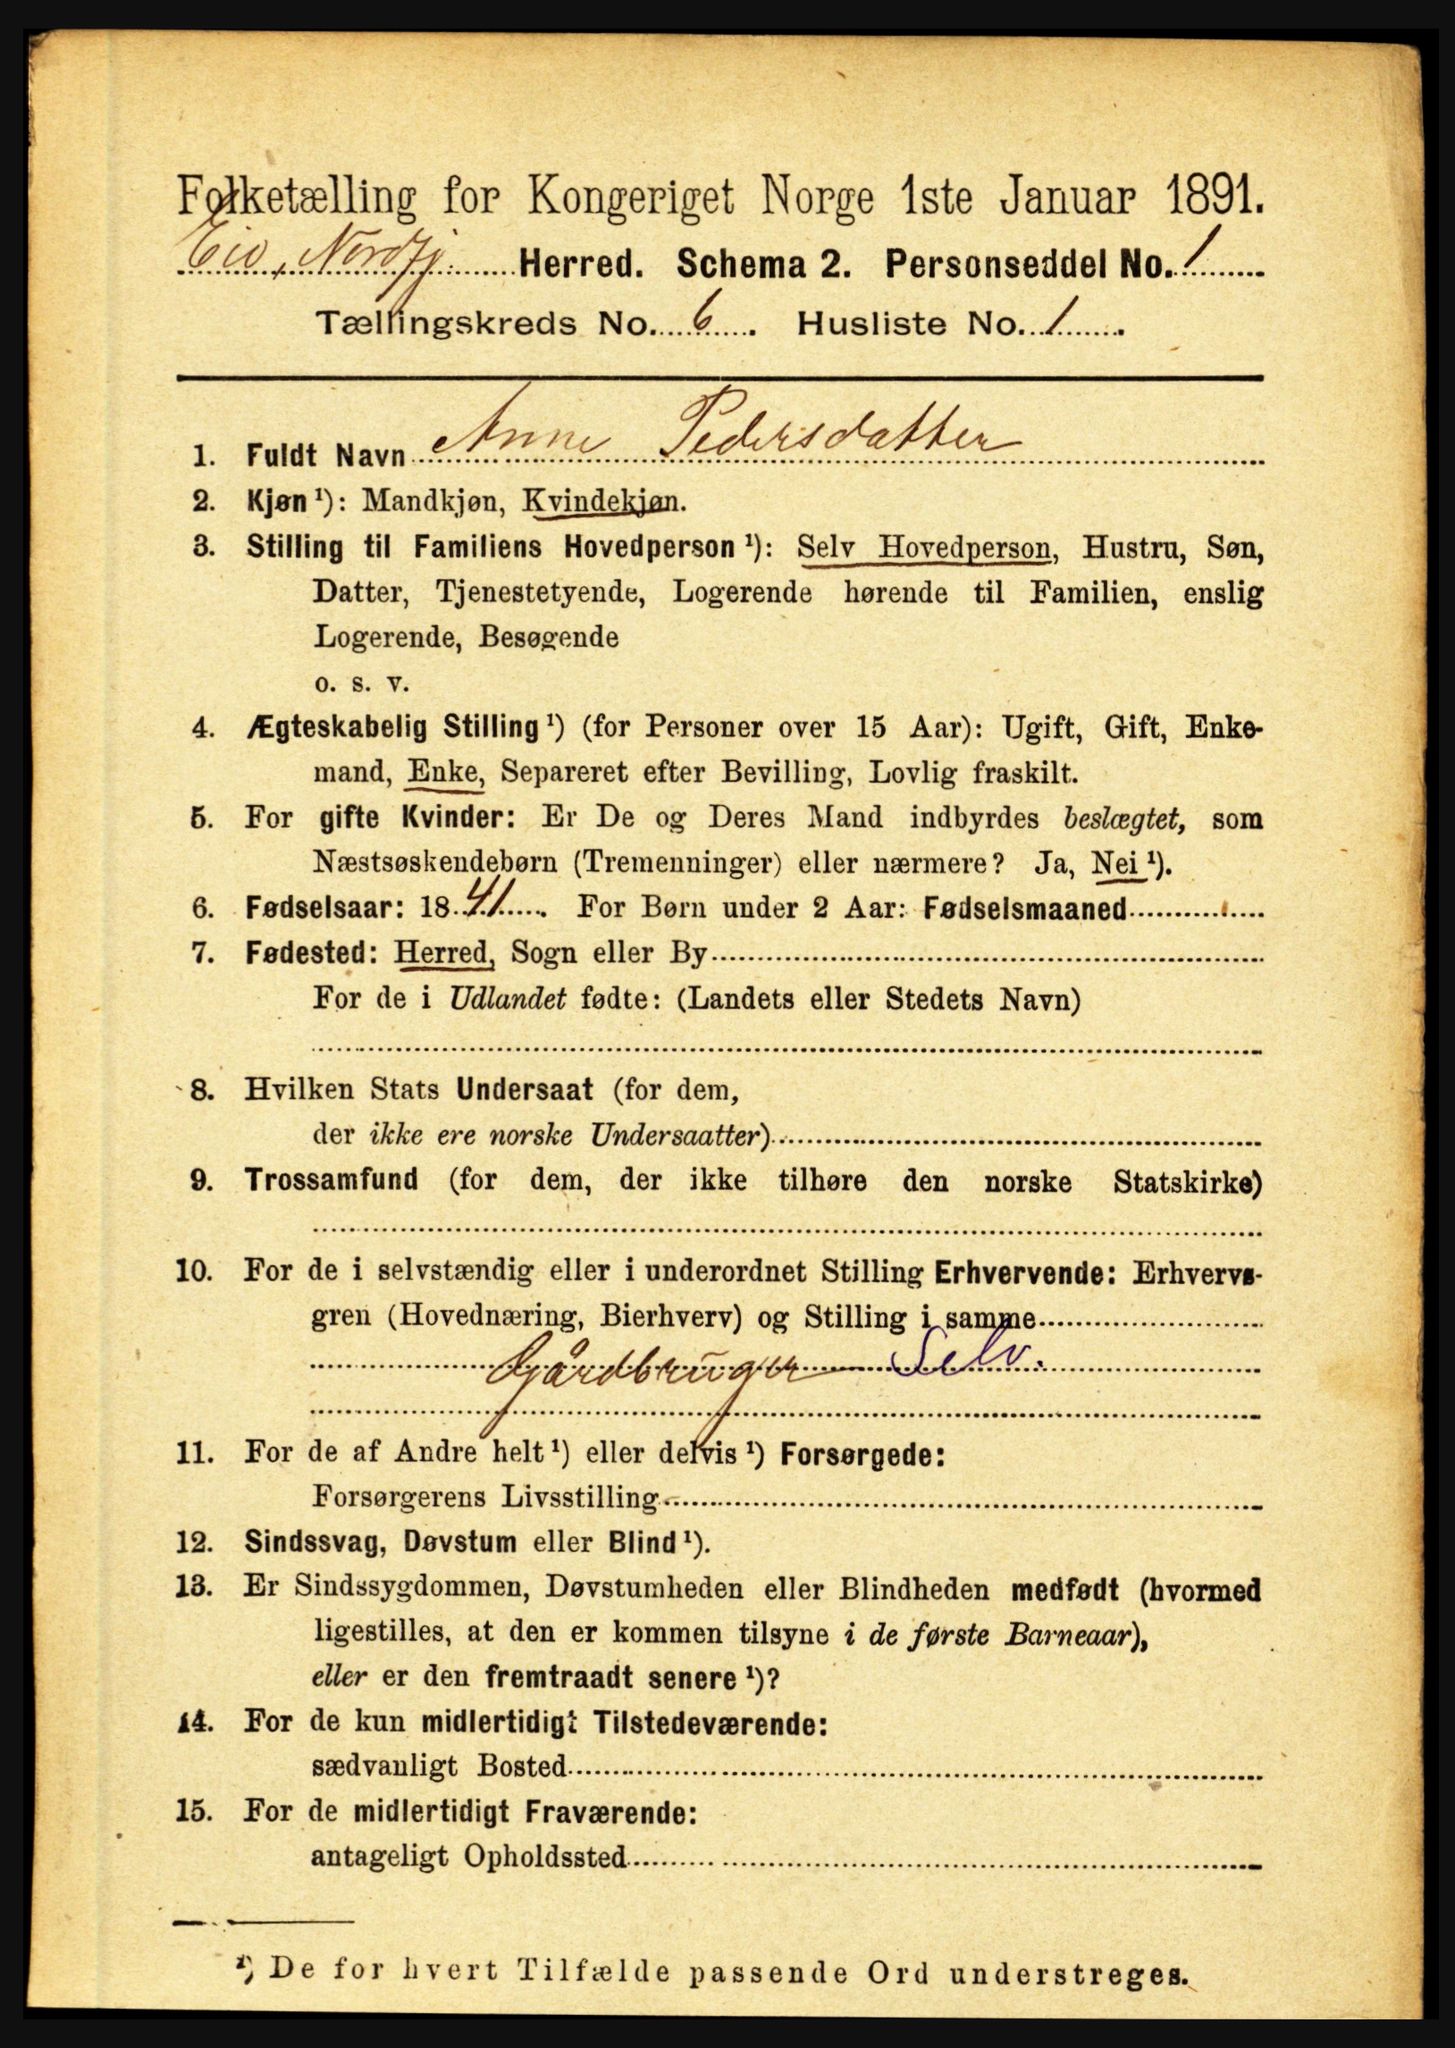 Folketælling for Kongeriget Norge 1ste Januar 1891.
Eid, Nordfj. Herred. Schema 2. Personseddel No. 1
Tællingskreds No. 6. Husliste No. 1.
1. Fuldt Navn Anne Pedersdatter
2. Kjøn ¹): Mandkjøn, Kvindekjøn.
3. Stilling til Familiens Hovedperson ¹): Selv Hovedperson, Hustru, Søn,
Datter, Tjenestetyende, Logerende hørende til Familien, enslig
Logerende, Besøgende
o. s. v.
4. Ægteskabelig Stilling ¹) (for Personer over 15 Aar): Ugift, Gift, Enke-
mand, Enke, Separeret efter Bevilling, Lovlig fraskilt.
5. For gifte Kvinder: Er De og Deres Mand indbyrdes beslægtet, som
Næstsøskendebørn (Tremenninger) eller nærmere? Ja, Nei ¹).
6. Fødselsaar: 1841. For Børn under 2 Aar: Fødselsmaaned
7. Fødested: Herred, Sogn eller By
For de i Udlandet fødte: (Landets eller Stedets Navn)
8. Hvilken Stats Undersaat (for dem,
der ikke ere norske Undersaatter)
9. Trossamfund (for dem, der ikke tilhøre den norske Statskirke)
10. For de i selvstændig eller i underordnet Stilling Erhvervende: Erhvervs-
gren (Hovednæring, Bierhverv) og Stilling i samme
Gårdbruger Selv.
11. For de af Andre helt ¹) eller delvis ¹) Forsørgede:
Forsørgerens Livsstilling
12. Sindssvag, Døvstum eller Blind ¹).
13. Er Sindssygdommen, Døvstumheden eller Blindheden medfødt (hvormed
ligestilles, at den er kommen tilsyne i de første Barneaar),
eller er den fremtraadt senere ¹)?
14. For de kun midlertidigt Tilstedeværende:
sædvanligt Bosted
15. For de midlertidigt Fraværende:
antageligt Opholdssted
¹) De for hvert Tilfælde passende Ord understreges.